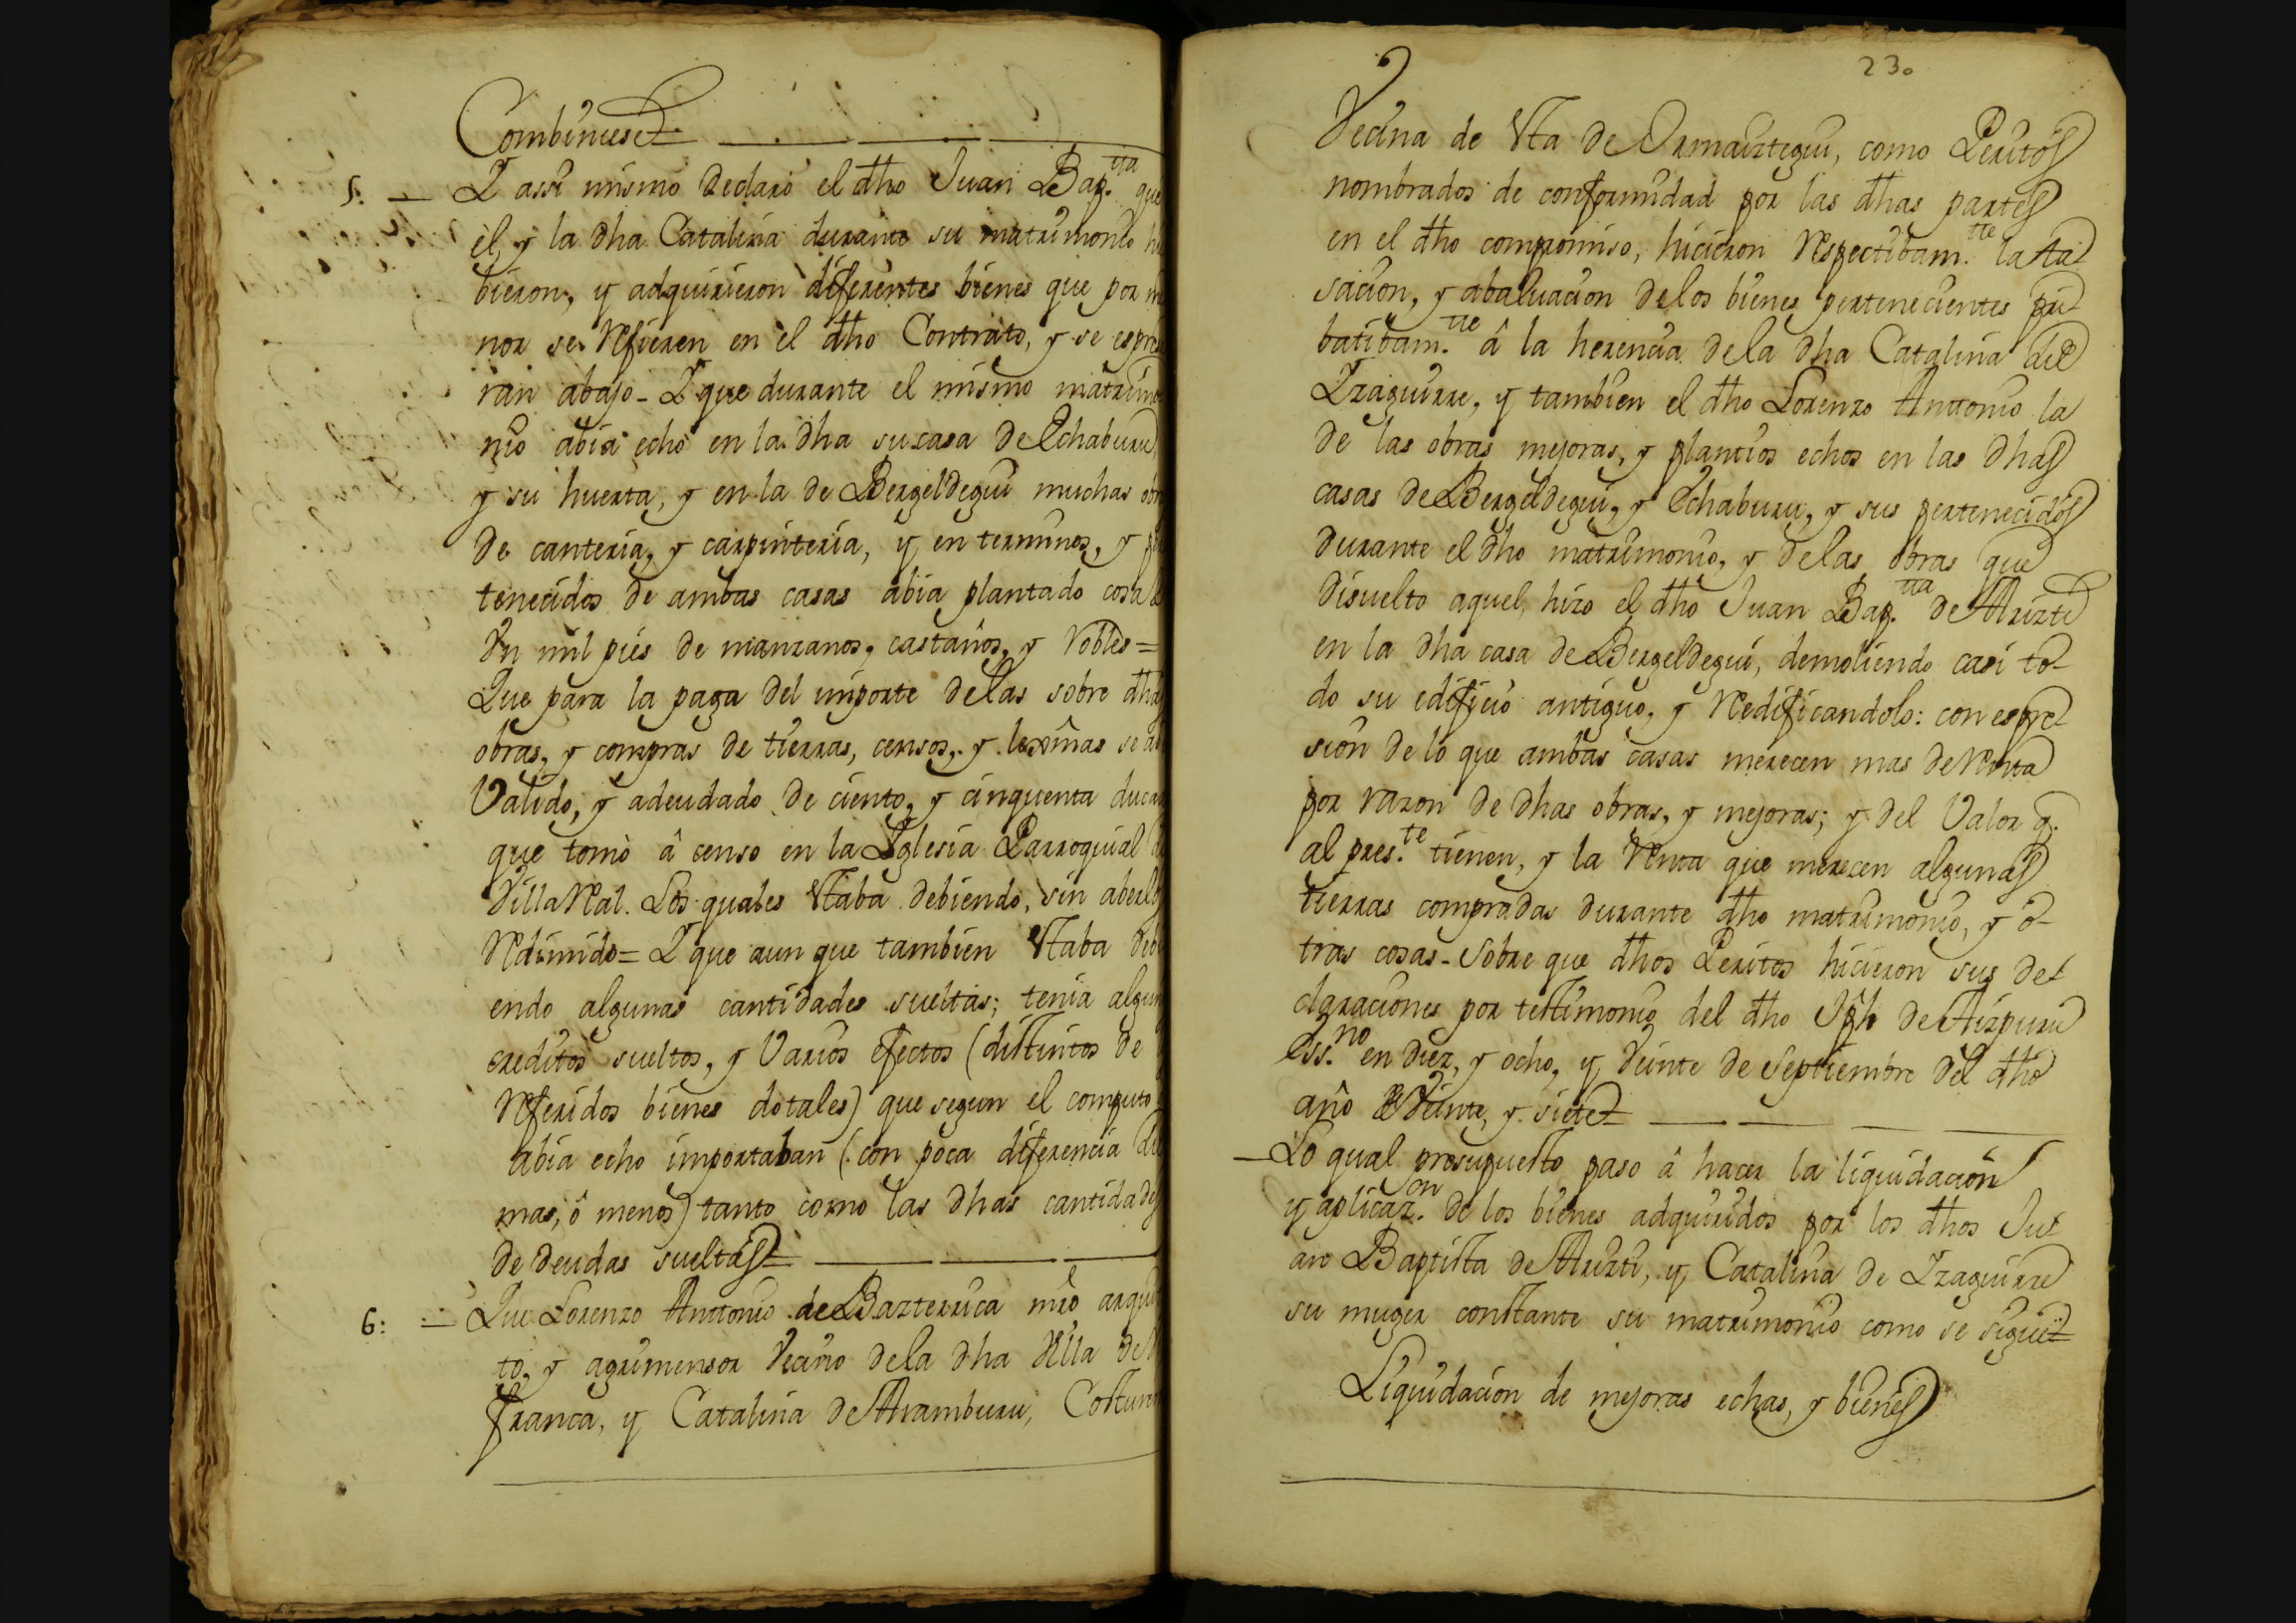 Combiniese
5. Y assi mismo declaró el dho Juan Bap.tta que
el, y la dha Catalina durante su matrimonio hu
bieron, y adquirieron diferentes bienes que por me
nor se Refieren en el dho Contrato, y se espresa
ran abajo - Y que durante el mismo matrimo
nio abia echo en la dha su casa de Echaburu
y su huerta, y en la de Bergeldegui muchas obr
de canteria, y carpinteria, y en terminos, y per
tenecidos de ambas casas abia plantado cosa de
Un mil pies de manzanos, castaños, y Robles =
Que para la paga del importe delas sobre dhas
obras, y compras de tierras, censos, y lexitimas se abia
Valido, y adeudado de ciento, y cinquenta ducad
que tomò â censo en la Yglesia Parroquial de
Villa Real. Los quales Estaba debiendo, sin aberlos
Redimido = Y que aun que tambien Estaba debi
endo algunas cantidades sueltas; tenia algun
creditos sueltos, y Varios efectos (distintos de
Referidos bienes dotales) que segun el computo
abia echo importaban (con poca diferencia de
mas, ô menos) tanto como las dhas cantidades
de deudas sueltas
6: Que Lorenzo Anttonio de Bazterrica mro arqui
to, y agrimensor Vecino dela dha Villa de
franca, y Catalina de Aramburu, Costurera
230
Vecina de Esta de Ormaiztegui, como Peritos
nombrados de conformidad por las dhas partes
en el dho compromiso, hicieron Respectibam.tte la ta
sacion, y abaluacion delos bienes pertenecientes pri
batibam.tte â la herencia dela dha Catalina de
Yzaguirre, y tambien el dho Lorenzo Anttonio la
de las obras mejoras, y plantios echos en las dhas
casas de Bergeldegui, y Echaburu, y sus pertenecidos
durante el dho matrimonio, y delas obras que
disuelto aquel, hizo el dho Juan Bap.tta de Arizti
en la dha casa de Bergeldegui, demoliendo casi to-
do su edificio antiguo, y Redificandolo: con espre
sion de lo que ambas casas merecen mas de Renta
por razon de dhas obras, y mejoras; y del Valor q.
al pres.te tienen, y la Renta que merecen algunas
tierras compradas durante dho matrimonio, y o-
tras cosas - Sobre que dhos Peritos hicieron sus de
claraciones por testimonio del dho Jph de Aizpuru
Ess.no en diez, y ocho, y Veinte de Septiembre del dho
año de Veinte, y siete
Lo qual presupuesto paso â hacer la liquidacion
y aplicaz.on de los bienes adquiridos por los dhos Ju
an Baptista de Arizti, y Catalina de Yzaguirre
su muger constante su matrimonio como se sigue
Liquidacion de mejoras echas, y bienes